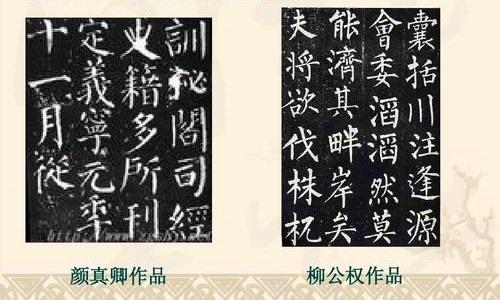 訓祕閣司經
史籍多所刊
定義寧元年
十一月從
囊括川注逢源
會委滔滔然莫
能濟其畔岸矣
夫將欲伐株杌
颜真卿作品
柳公权作品